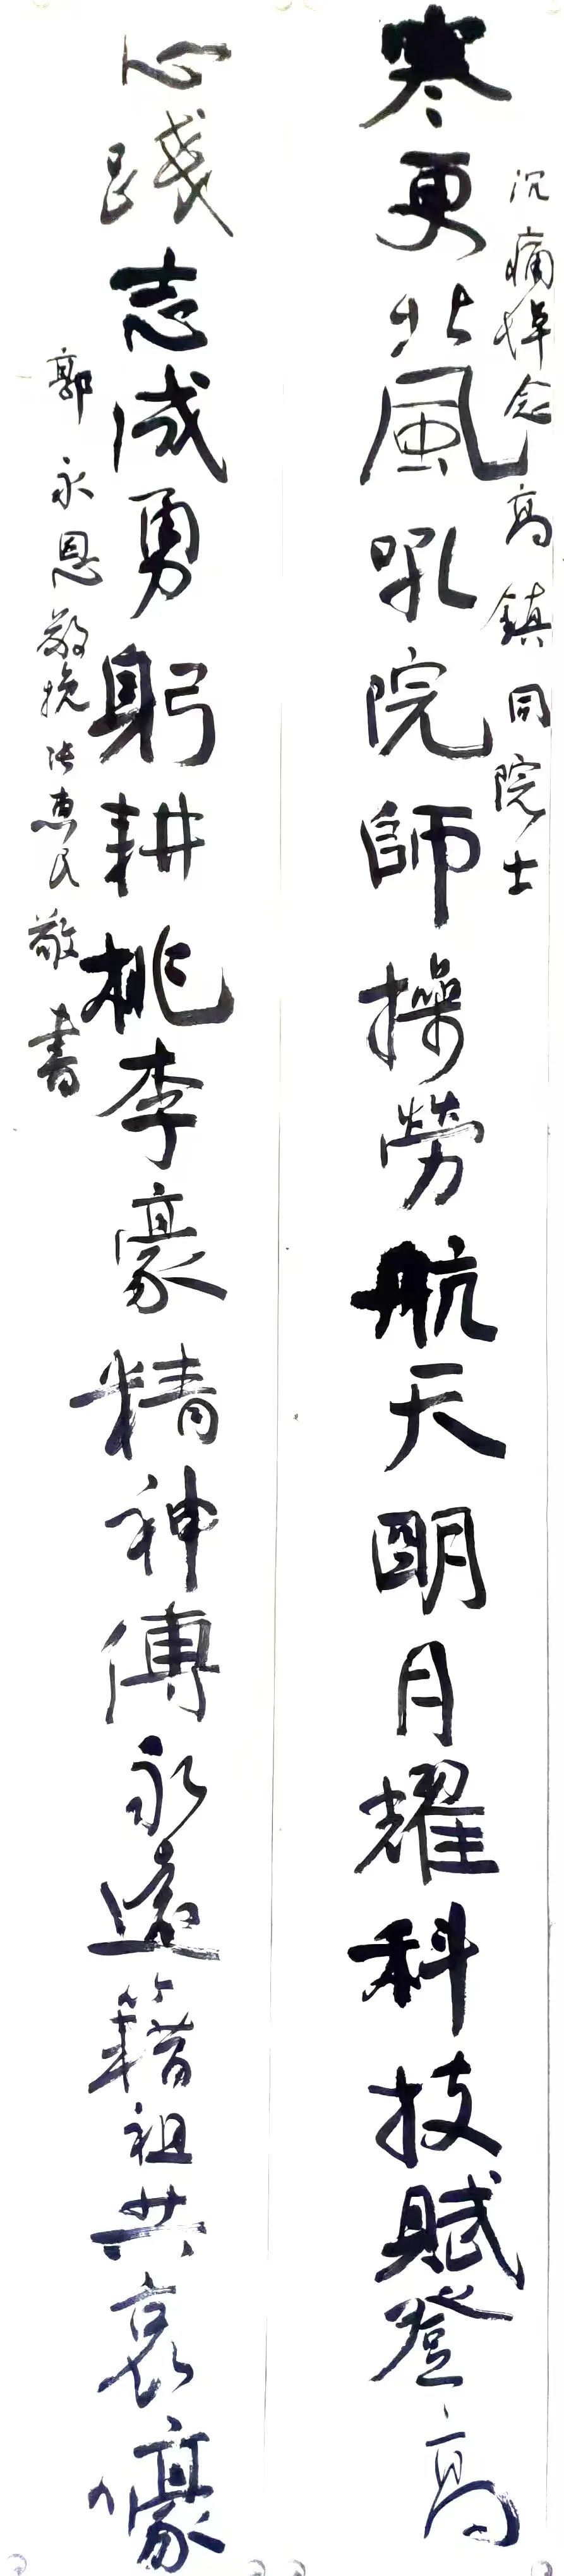 沉痛悼念高鎮同院士
寒更北風吼院師操勞航天明月耀科技賦登高
心踐志成勇躬耕桃李豪精神傳永遠籍祖共哀嚎
郭永恩敬挽張惠民敬書